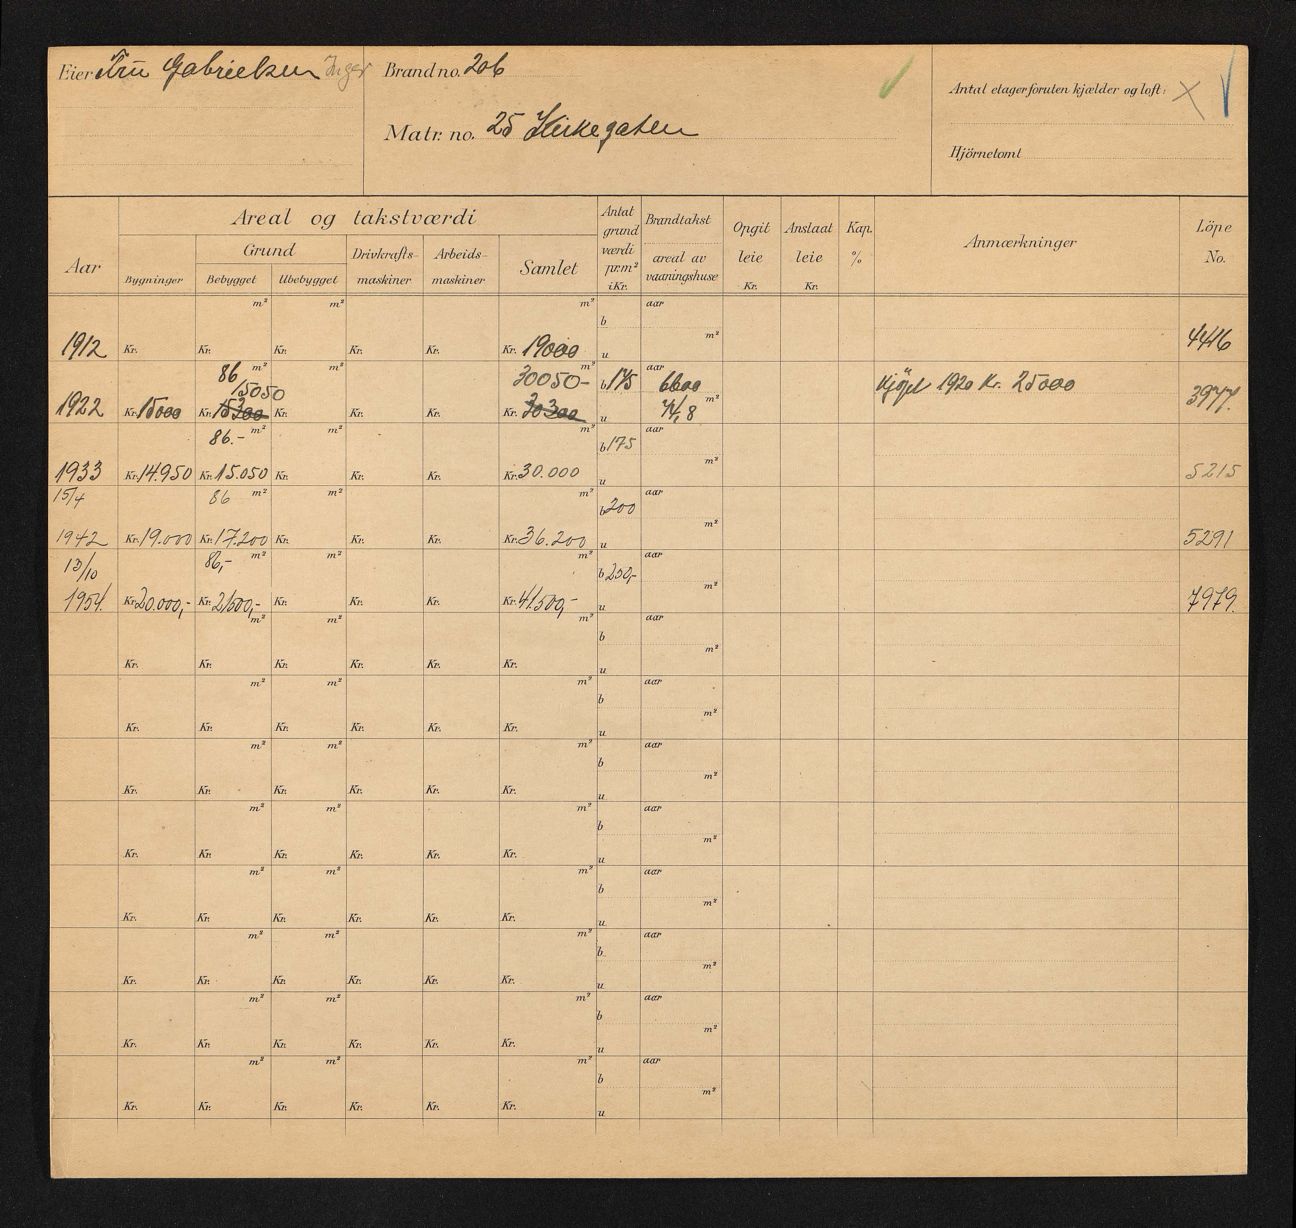 Eier Fru Gabrielsen Inger
Brand no. 206
Matr. no. 25 Kirkegaten
Antal etager foruten kjælder og loft:
Hjörnetomt
Aar
Areal og takstværdi
Bygninger
Grund
Bebygget
Ubebygget
Drivkrafts-
maskiner
Arbeids-
maskiner
Samlet
Antat
grund
værdi
pr. m²
i Kr.
Brandtakst
areal av
vaaningshuse
Opgit
leie
Kr.
Anslaat
leie
Kr.
Kap.
%
Anmærkninger
Löpe
No.
m² m² m² b aar
1912 Kr. Kr. Kr. Kr. Kr. Kr. 19000 u m² 4446
86 m² m² 30050- m² b 175 aar 6600 Kjöpt 1920 Kr. 25000
15050
1922 Kr. 15000 Kr. 15300 Kr. Kr. Kr. Kr. 30300 u 74,8 m² 3977.
86.- m² m² m² b 175 aar
1933 Kr. 14.950 Kr. 15.050 Kr. Kr. Kr. Kr. 30.000 u m² 5215
15/4 86 m² m² m² b 200 aar
1942 Kr. 19.000 Kr. 17.200 Kr. Kr. Kr. Kr. 36.200 u m² 5291
13/10 86,- m² m² m² b 250,- aar
1954. Kr. 20.000,- Kr. 21500,- Kr. Kr. Kr. Kr. 41.500,- u m² 7979.
m² m² m² b aar
Kr. Kr. Kr. Kr. Kr. Kr. u m²
m² m² m² b aar
Kr. Kr. Kr. Kr. Kr. Kr. u m²
m² m² m² b aar
Kr. Kr. Kr. Kr. Kr. Kr. u m²
m² m² m² b aar
Kr. Kr. Kr. Kr. Kr. Kr. u m²
m² m² m² b aar
Kr. Kr. Kr. Kr. Kr. Kr. u m²
m² m² m² b aar
Kr. Kr. Kr. Kr. Kr. Kr. u m²
m² m² m² b aar
Kr. Kr. Kr. Kr. Kr. Kr. u m²
m² m² m² b aar
Kr. Kr. Kr. Kr. Kr. Kr. u m²